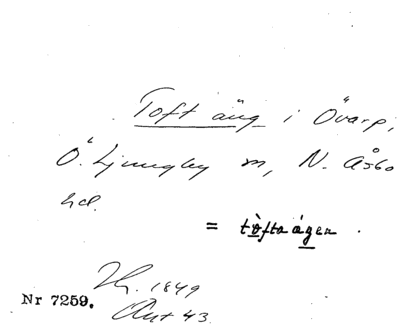 Toft äng i Övarp,
Ö. Ljungby sn, N. Åsbo
hd.
= tòftaágen.
1849
Nr 7259.
43